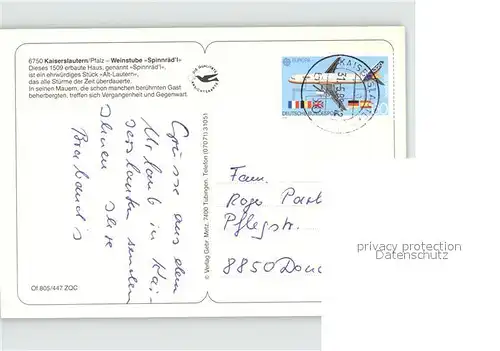 6750 Kaiserslautern/Pfalz – Weinstube »Spinnräd'l«
Dieses 1509 erbaute Haus, genannt »Spinnräd'l«,
ist ein ehrwürdiges Stück »Alt-Lautern«,
das alle Stürme der Zeit überdauerte.
In seinen Mauern, die schon manchen berühmten Gast
beherbergten, treffen sich Vergangenheit und Gegenwart.
Grüsse aus dem
Urlaub in Kai-
serslautern senden
Ihnen Ihre
Of.805/447 ZQC
© Verlag Gebr. Metz, 7400 Tübingen, Telefon (07071) 31051
EUROPA
DEUTSCHE BUNDESPOST
KAISERSLAUTERN
Fam.
Roger
Pflegstr.
8850
privacy protection
Datenschutz